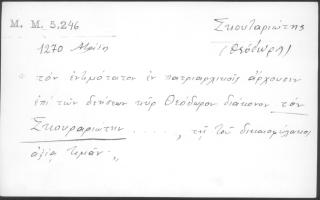 M. M. 5.246
Σκουταριώτης
(Θεόδωρος)
1270 Ἀπρίλη
τὸν ἐντιμότατον ἐν πατριαρχικοῖς ἄρχουσιν
ἐπὶ τῶν δεήσεων κῦρ Θεόδωρον διάκονον τὸν
Σκουταριώτην . . . . . , τῇ τοῦ δικαιοφύλακος
ἀξίᾳ τιμᾶν .,